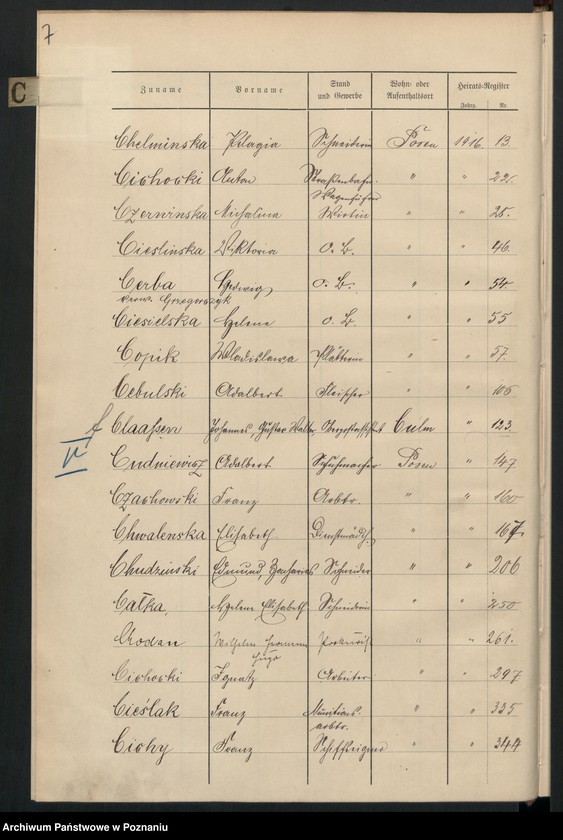 7
C
Zuname Vorname Stand und Gewerbe Wohn- oder Aufenthaltsort Heirats-Register
Jahrg. Nr.
Chelminska Pelagia Schneiderin Posen 1916 13.
Cichocki Anton Straßenbahn- " " 22.
Wagenführer
Czerwinska Michalina Wirtin " " 28.
Cieslinska Wiktoria o. B. " " 46.
Cerba Hedwig o. B. " " 54.
verw. Grzegorczyk
Ciesielska Helene o. B. " " 55
Copik Wladislawa Plätterin " " 57.
Cebulski Adalbert Fleischer " " 106
Claassen Johannes, Gustav Walter Culm " 123
Cudniewicz Adalbert Schuhmacher Posen " 147
Czachowski Franz Arbtr. " " 160
Chwalenska Elisabeth Dienstmädch. " " 167.
Chudzinski Edmund, Schneider " " 206
Całka, Helene Elisabeth Schneiderin " " 250
Wilhelm Hermann Prokurist " " 261.
Hugo
Cichocki Ignatz Arbeiter " " 297
Cieślak Franz Munitions- " " 335
arbtr.
Cichy Franz " " 344
Archiwum Państwowe w Poznaniu